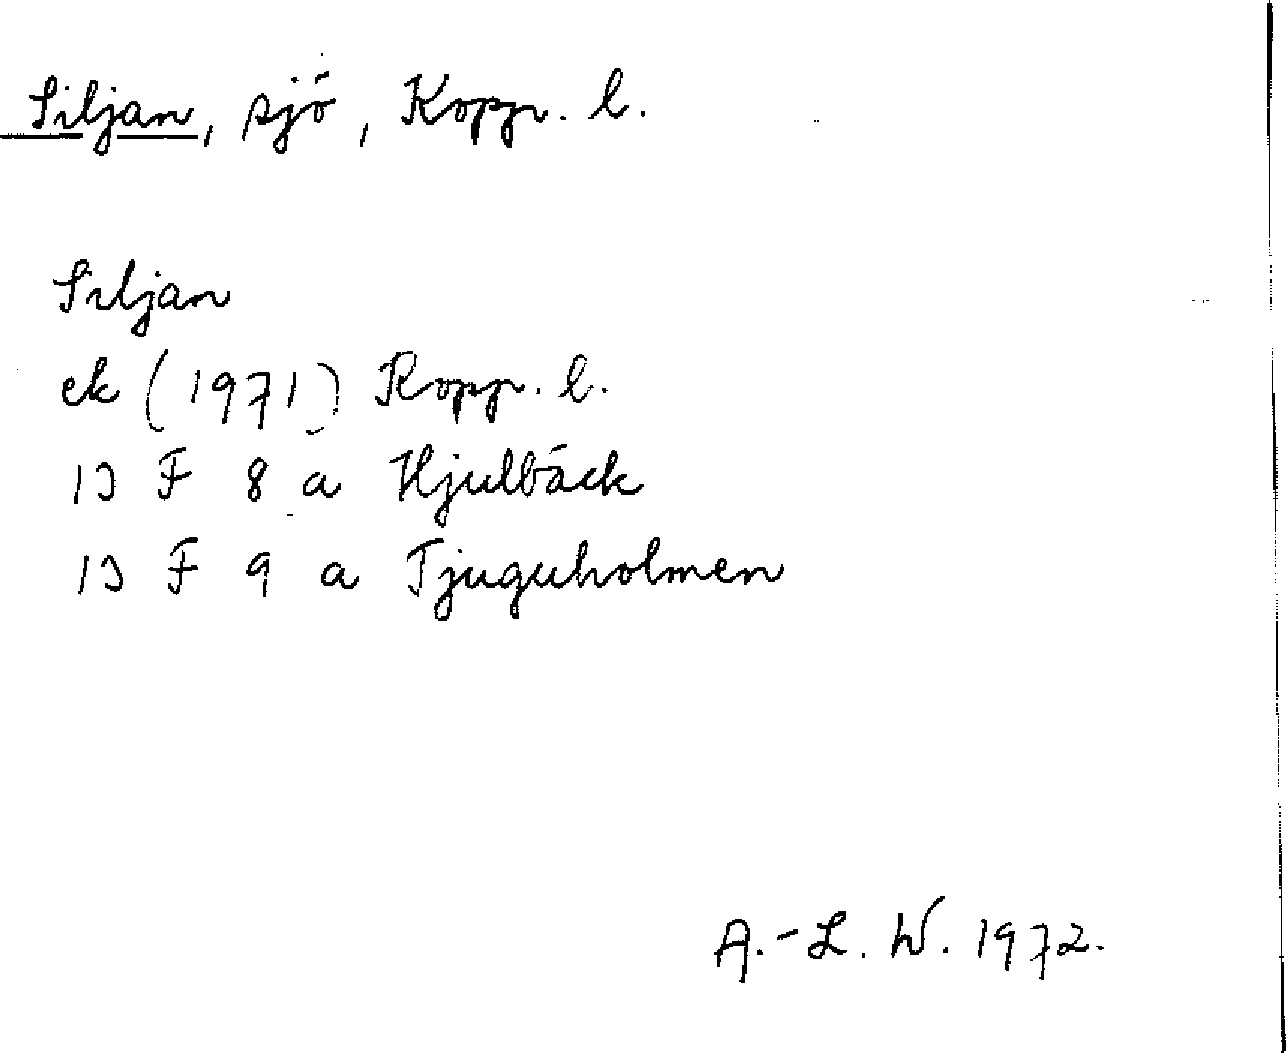 Siljan, sjö, Kopp. l.
Siljan
ek (1971) Kopp. l.
13 F 8 a Hjulbäck
13 F 9 a Tjuguholmen
A.-L. W. 1972.